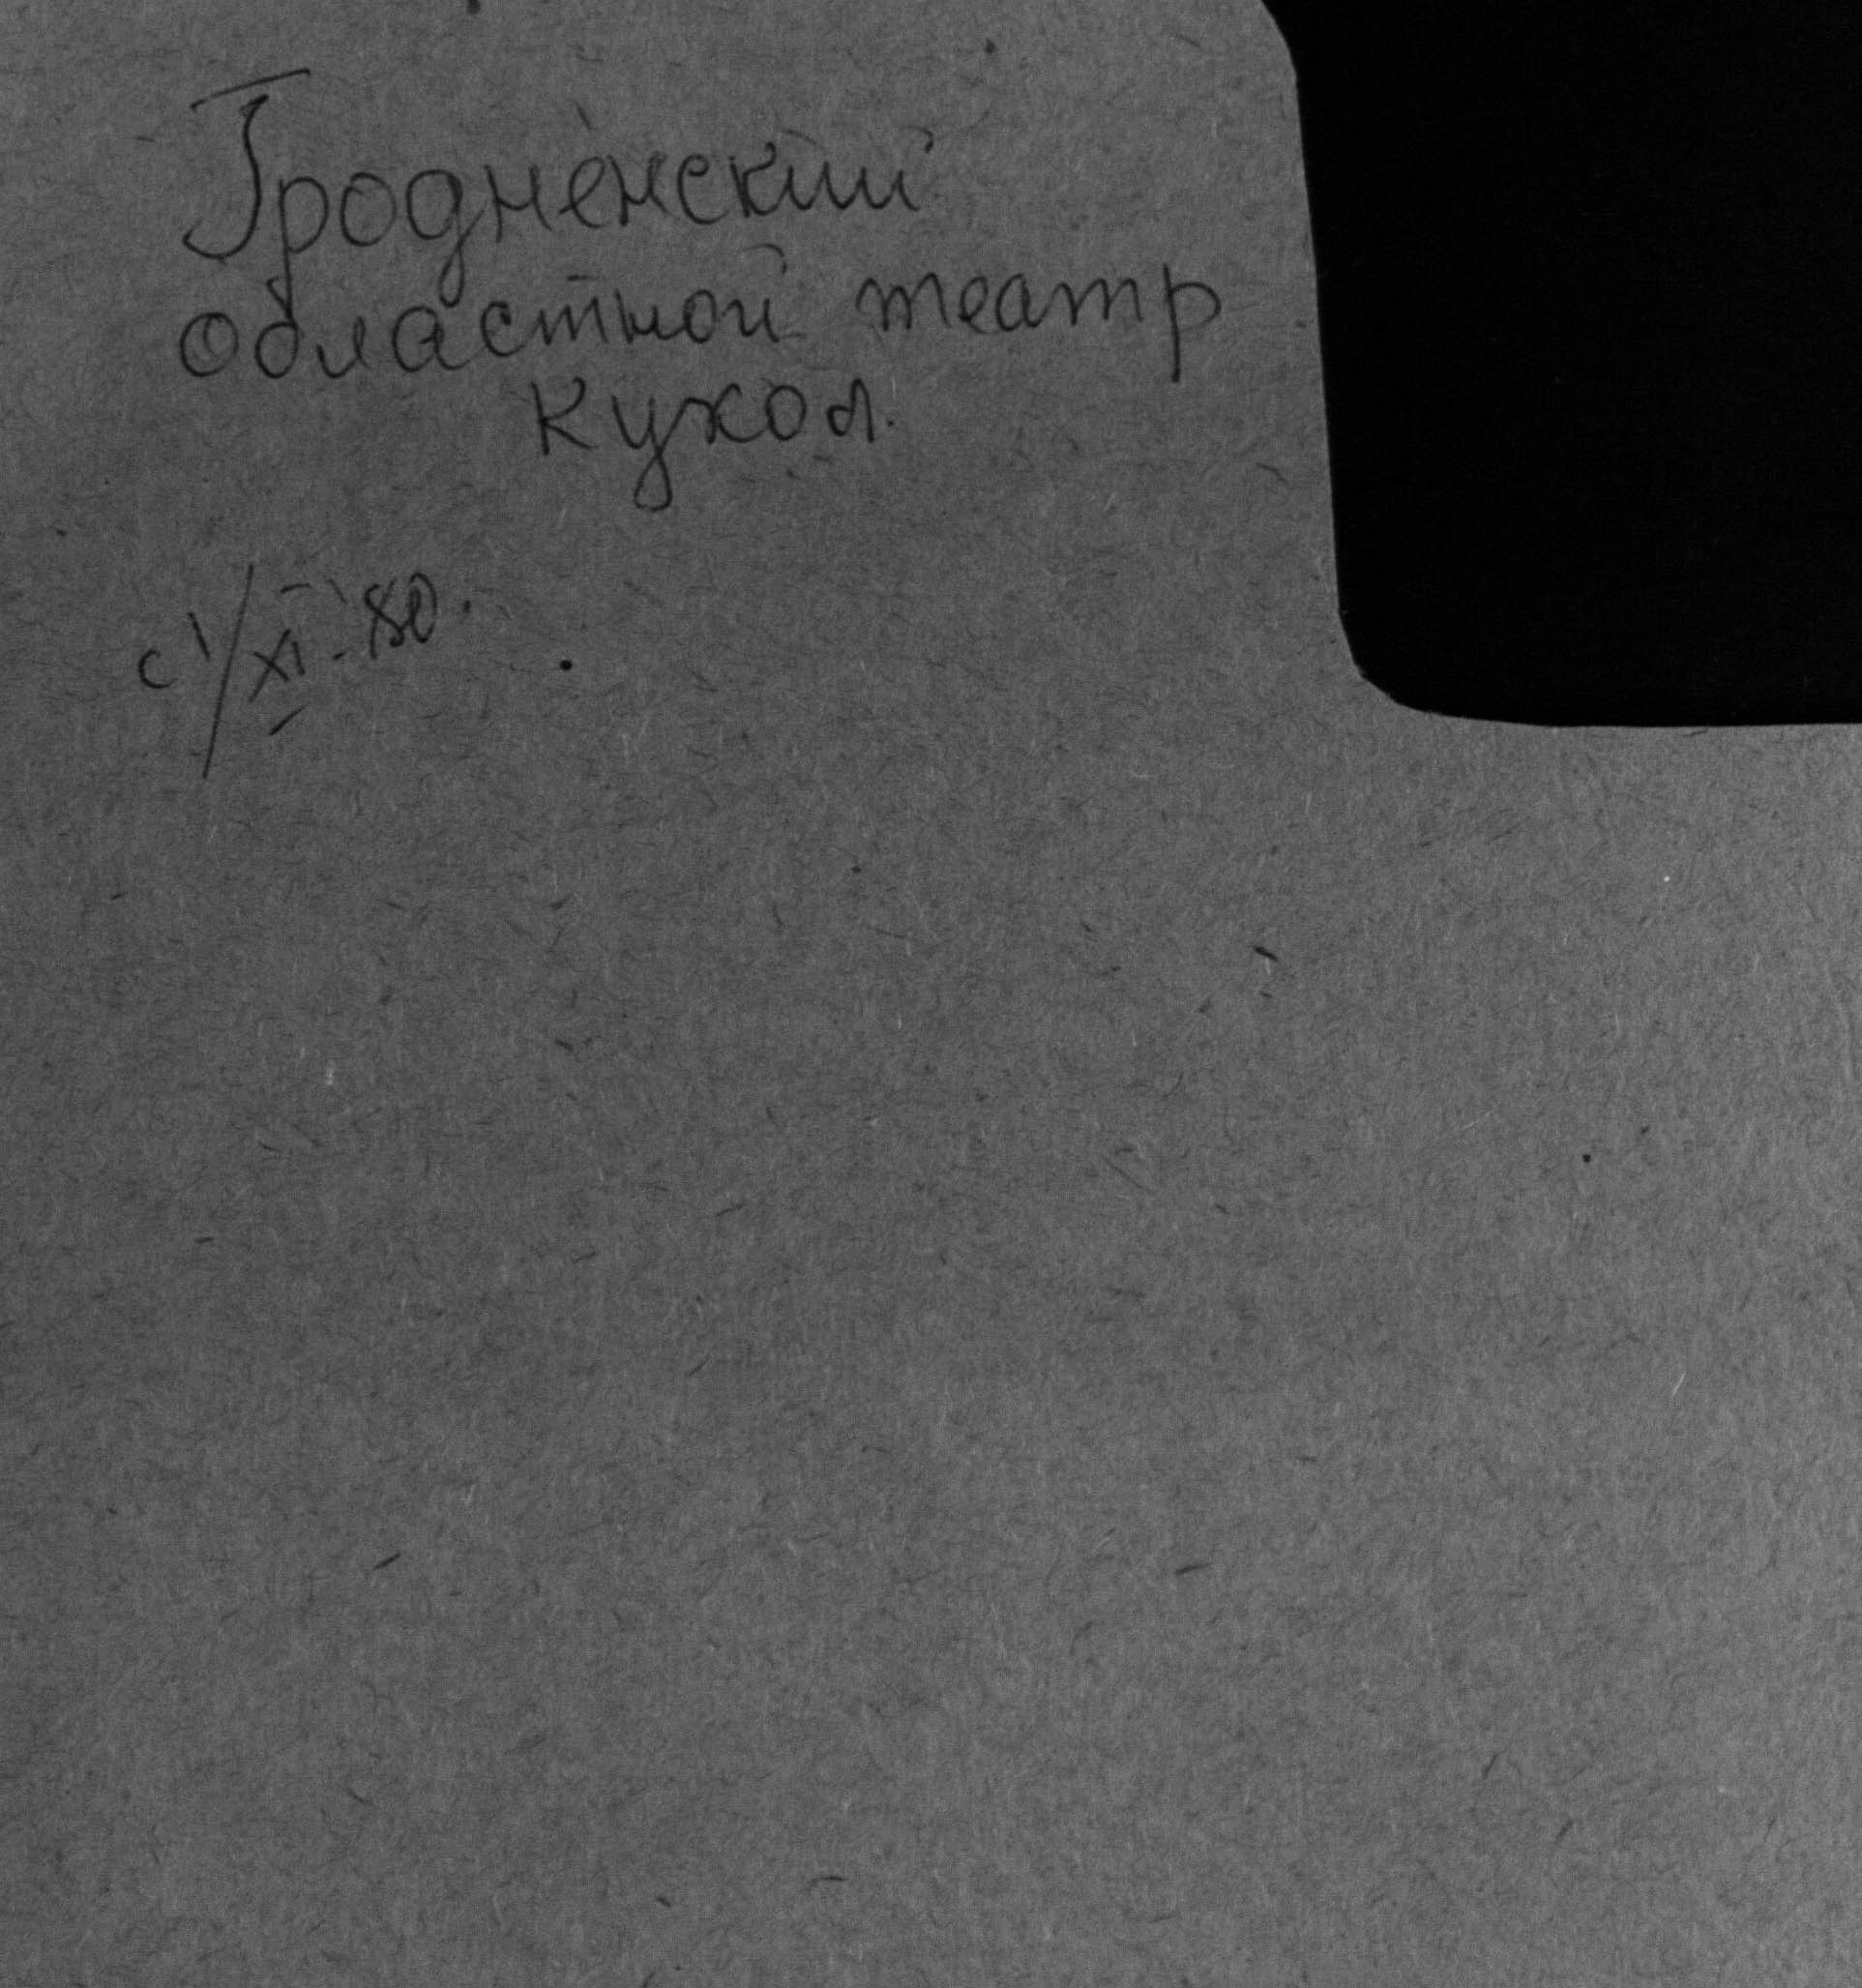 Гродненский
областной театр
кукол.
с 1/XI-80.